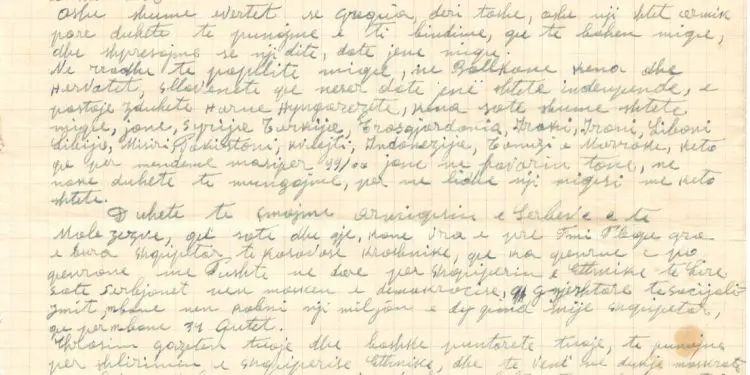 oshe shume evertet se Greqia, deri tashe, oshe nji shtet armik
pore duhete te punojme e ti bindime, qe te bahen miqe,
dhe shpresojme se nji dite, dote jene miqe.
Ne rradhe te popullite miqe, ne Ballkane kena dhe
Hervatet, Sllovenete qe neser dote jenë shtete independe, e
pastaje zanhete Harne Hyngarezete, kena sote shume shtete
miqe, jone, Syrije Turkije, Trasajordonia, Iraki, Irani, Liboni
Libija, Misiri Pakistoni, Kuvejti, Indonezija, Tunizi e Morroke, keto
qe per mendeme masiper 99/oo jone ne favorin tone, ne
noke duhete te mungojme, per me lidhe nji miqesi me keto
shtete.
Duhete te çmojme armiqesin e Serbeve e te
Male zezve, qe sote dhe gje, kane vra e pre Fmi Pleqe gra
e bura Shqipëtar te Kosovose Kreshnike, qe ka qenrue e po
qenrone me Pushte ne dore per Shqiperin e Ethnike te Lire
sote Serbjonet nen masken e demokracise, te socijali
zmit, mbane nen robni nji miljon e dy qind mije shqipetar,
qe permbane 31 Qytet.
gazeten tuaje dhe bashke puntorete tuaje, te punojne
per shlirimin e Shqiperise Ethnike, dhe te vene ne dukje